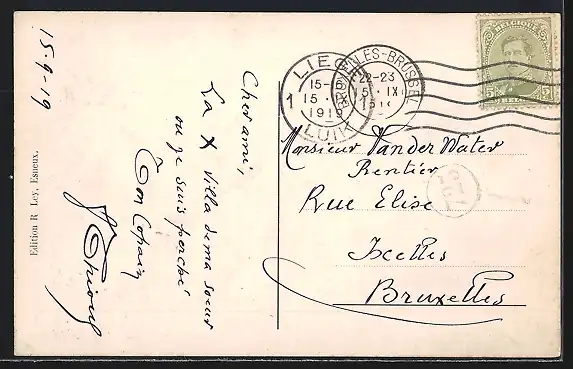 15-9-19
Cher ami,
La X Villa de ma soeur
ou je suis perché
Ton Copain
Edition R. Ley, Esneux.
LIEGE
1
15-
15
1919
LUIK
IXELLES-BRUSSEL
22-23
15 IX
191
BELGIQUE
5 5
BELGIE
Monsieur Van der Water
Rentier
Rue Elise
Ixelles
Bruxelles